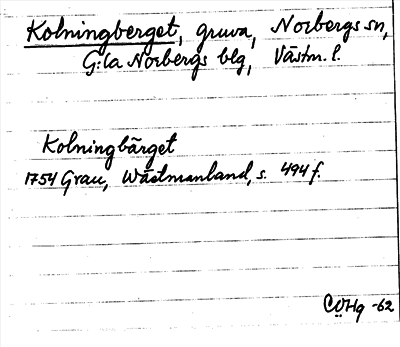 Kolningberget, gruva, Norbergs sn,
G:la Norbergs blg, Västm. l.
Kolningbärget
1754 Grau, Wästmanland, s. 494 f.
CÖHg -62